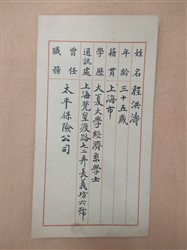 姓名 程洪濤
年龄 三十五歲
籍貫 上海市
學歷 大夏大學經濟系學士
通訊處 上海梵皇渡路九二弄長義坊六號
曾任職務 太平保險公司